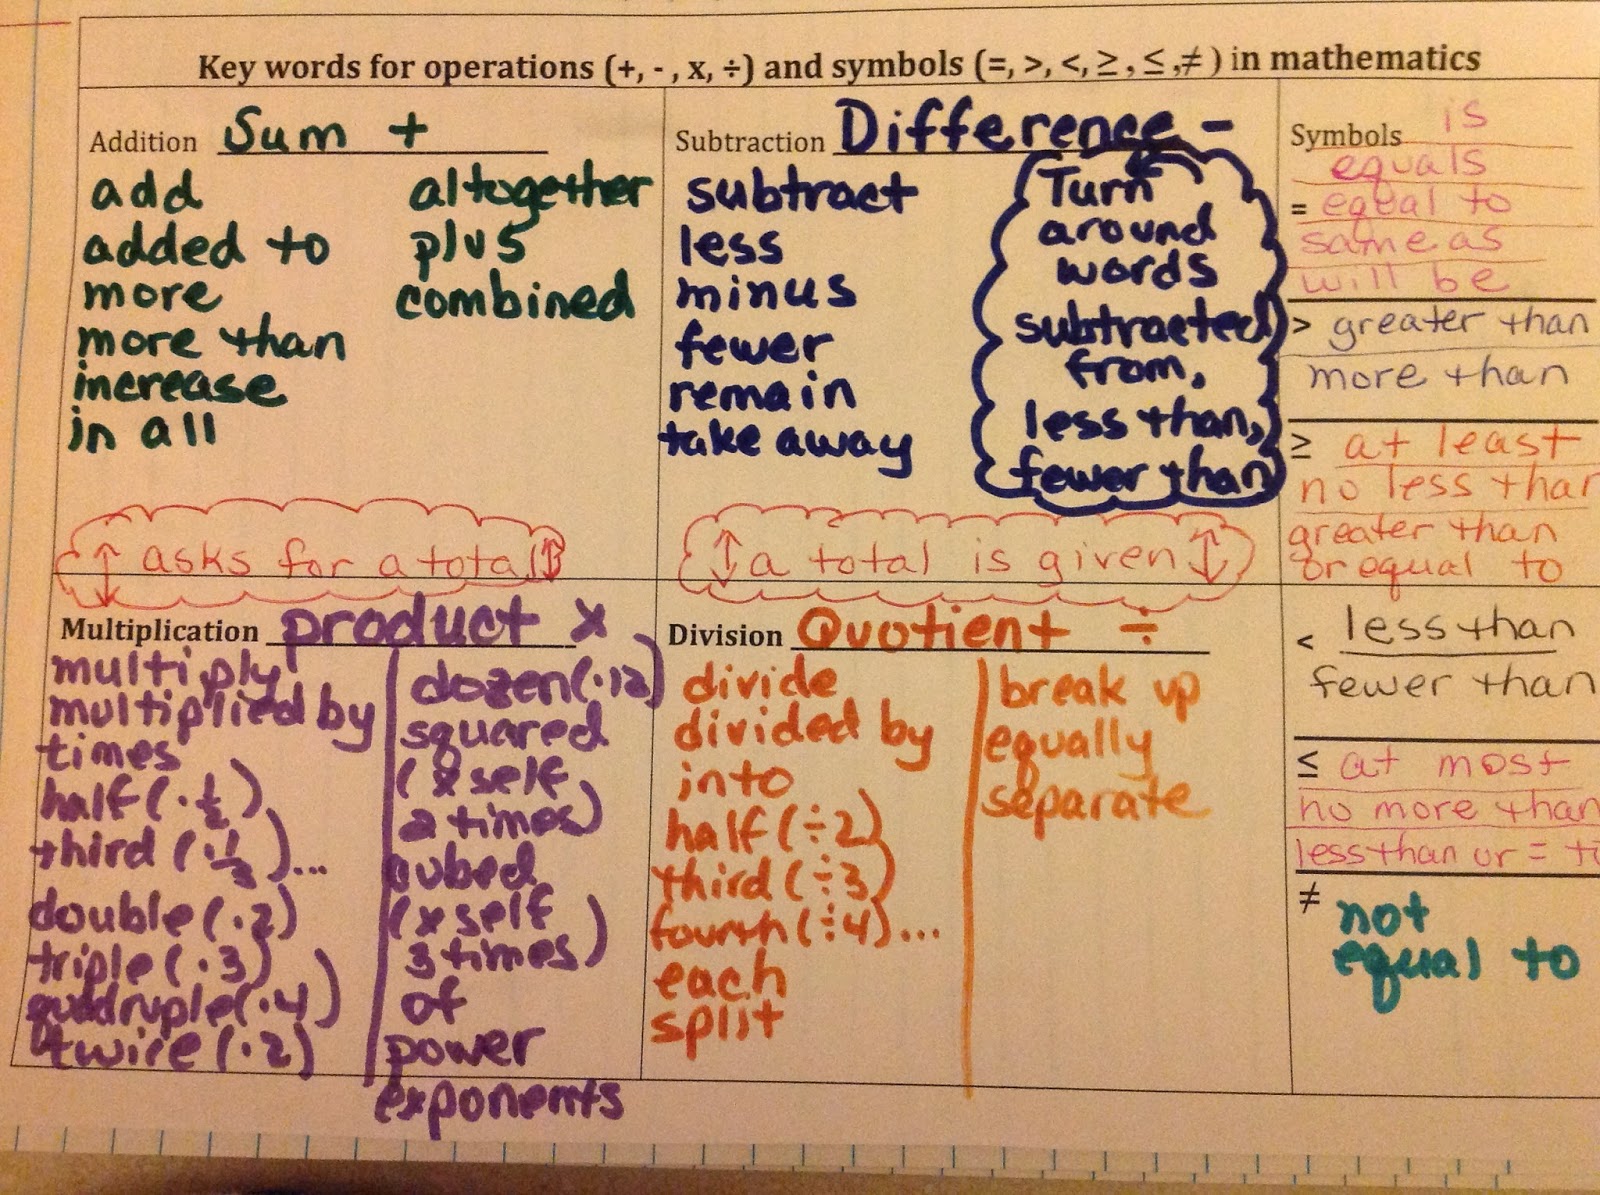 Key words for operations (+, - , x, ÷) and symbols (=, >, <, ≥ , ≤ ,≠ ) in mathematics
Addition Sum +
add
added to
more
more than
increase
in all
altogether
plus
combined
asks for a total
Subtraction Difference -
subtract
less
minus
fewer
remain
take away
Turn
around
words
subtracted
from,
less than,
fewer than
a total is given
Symbols is
equals
= equal to
same as
will be
> greater than
more than
≥ at least
no less than
greater than
or equal to
< less than
fewer than
≤ at most
no more than
less than or = to
≠ not
equal to
Multiplication product x
multiply
multiplied by
times
half (· 1/2)
third (· 1/3)...
double (· 2)
triple (· 3)
quadruple (· 4)
twice (· 2)
dozen (· 12)
squared
(x self
2 times)
cubed
(x self
3 times)
of
power
exponents
Division Quotient ÷
divide
divided by
into
half (÷2)
third (÷3)
fourth (÷4)...
each
split
break up
equally
separate